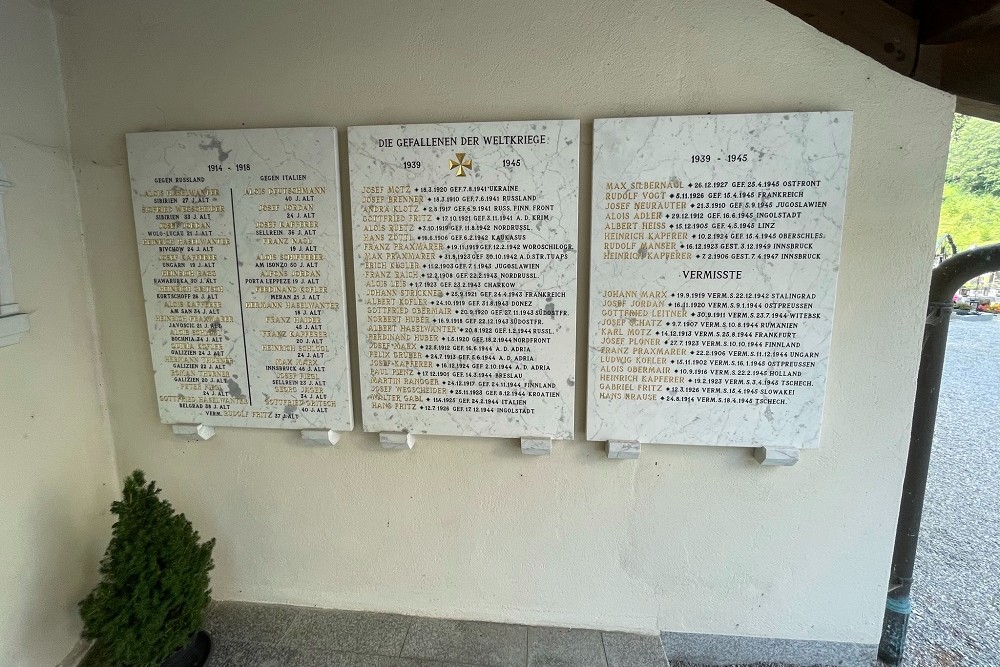 1914 - 1918
GEGEN RUSSLAND
SIBIRIEN 27 J. ALT
SIBIRIEN 33 J. ALT
JOSEF JORDAN
21 J. ALT
HEINRICH HASELWANTER
24 J. ALT
JOSEF KAPFERER
UNGARN 19 J. ALT
HEINRICH HASS
30 J. ALT
26 J. ALT
HEINRICH PRAXMARER
GALIZIEN 22 J. ALT
GALIZIEN 24 J. ALT
GALIZIEN 20 J. ALT
24 J. ALT
GOTTFRIED HASELWANTER
BELGRAD 38 J. ALT
GEGEN ITALIEN
ALOIS DEUTSCHMANN
40 J. ALT
JOSEF JORDAN
24 J. ALT
JOSEF KAPFERER
SELLREIN 36 J. ALT
FRANZ NAGL
19 J. ALT
AM ISONZO 50 J. ALT
ALFONS JORDAN
PORTA LEPPEZE 19 J. ALT
FERDINAND KOFLER
MERAN 21 J. ALT
FERDINAND HASELWANTER
19 J. ALT
FRANZ HAIDER
45 J. ALT
FRANZ KAPFERER
20 J. ALT
24 J. ALT
MAX MARX
INNSBRUCK 46 J. ALT
SELLREIN 23 J. ALT
24 J. ALT
40 J. ALT
VERM. RUDOLF FRITZ 37 J. ALT
DIE GEFALLENEN DER WELTKRIEGE
1939 1945
JOSEF MOTZ 16.3.1920 GEF. 7.8.1941 UKRAINE
JOSEF BRENNER 18.3.1910 GEF. 7.6.1941 RUSSLAND
ANDRÄ KLOTZ 2.8.1917 GEF. 6.9.1941 RUSS. FINN. FRONT
GOTTFRIED FRITZ 17.10.1921 GEF. 3.11.1941 A.D. KRIM
ALOIS RUETZ 3.10.1919 GEF. 11.8.1942 NORDRUSSL.
HANS ZÖTTL 16.6.1906 GEF. 6.2.1942 KAUKASUS
FRANZ PRAXMARER 19.11.1919 GEF. 12.2.1942 WOROSCHILOGR.
MAX PRAXMARER 31.8.1923 GEF. 30.10.1942 A.D. STR. TUAPS
ERICH KÖSLER 11.2.1903 GEF. 7.1.1943 JUGOSLAWIEN
FRANZ RAICH 12.7.1908 GEF. 22.2.1943 NORDRUSSL.
ALOIS LEIS 1.7.1923 GEF. 23.2.1943 CHARKOW
JOHANN STRICKNER 25.9.1921 GEF. 24.4.1943 FRANKREICH
ALBERT KOFLER 24.10.1919 GEF. 31.8.1943 DONEZ
GOTTFRIED OBERMAIR 20.9.1920 GEF. 27.11.1943 SÜDOSTFR.
NORBERT HUBER 16.9.1918 GEF. 22.12.1943 SÜDOSTFR.
ALBERT HASELWANTER 20.8.1922 GEF. 1.2.1944 RUSSL.
FERDINAND HUBER 1.5.1920 GEF. 18.2.1944 NORDFRONT
JOSEF MARX 15.8.1912 GEF. 16.6.1944 A.D. ADRIA
FELIX GRUBER 24.7.1913 GEF. 13.6.1944 A.D. ADRIA
JOSEF KAPFERER 16.12.1924 GEF. 2.10.1944 A.D. ADRIA
PAUL PLETZ 17.12.1901 GEF. 14.3.1944 BRESLAU
MARTIN RANGGER 24.12.1917 GEF. 24.11.1944 FINNLAND
JOSEF WEGSCHEIDER 25.11.1923 GEF. 8.12.1944 KROATIEN
WALTER GABL 11.4.1925 GEF. 24.2.1944 ITALIEN
HANS FRITZ 12.7.1926 GEF. 17.12.1944 INGOLSTADT
1939 - 1945
MAX SILBERNAGL 26.12.1927 GEF. 25.4.1945 OSTFRONT
RUDOLF VOGT 5.11.1926 GEF. 15.4.1945 FRANKREICH
JOSEF NEURAUTER 21.3.1910 GEF. 5.9.1945 JUGOSLAWIEN
ALOIS ADLER 29.12.1912 GEF. 16.6.1945 INGOLSTADT
ALBERT HEISS 15.12.1905 GEF. 4.5.1945 LINZ
HEINRICH KAPFRER 10.2.1924 GEF. 15.4.1945 OBERSCHLES.
RUDOLF MANSER 16.12.1923 GEST. 3.12.1949 INNSBRUCK
HEINRICH KAPFERER 7.2.1906 GEST. 7.4.1947 INNSBRUCK
VERMISSTE
JOHANN MARX 19.9.1919 VERM. S. 22.12.1942 STALINGRAD
JOSEF JORDAN 16.11.1920 VERM. S. 9.1.1944 OSTPREUSSEN
GOTTFRIED LEITNER 30.9.1911 VERM. S. 23.7.1944 WITEBSK
JOSEF SCHATZ 9.7.1907 VERM. S. 10.8.1944 RUMÄNIEN
KARL MOTZ 14.12.1913 VERM. S. 25.8.1944 FRANKFURT
JOSEF PLONER 27.7.1923 VERM. S. 10.10.1944 FINNLAND
FRANZ PRAXMARER 22.2.1906 VERM. S. 11.12.1944 UNGARN
LUDWIG KÖHLER 15.11.1902 VERM. S. 16.1.1945 OSTPREUSSEN
ALOIS OBERMAIR 10.9.1916 VERM. S. 22.2.1945 HOLLAND
HEINRICH KAPFERER 19.2.1923 VERM. S. 3.4.1945 TSCHECH.
GABRIEL FRITZ 12.3.1926 VERM. S. 15.4.1945 SLOWAKEI
HANS KRAUSE 24.8.1914 VERM. S. 18.4.1945 TSCHECH.